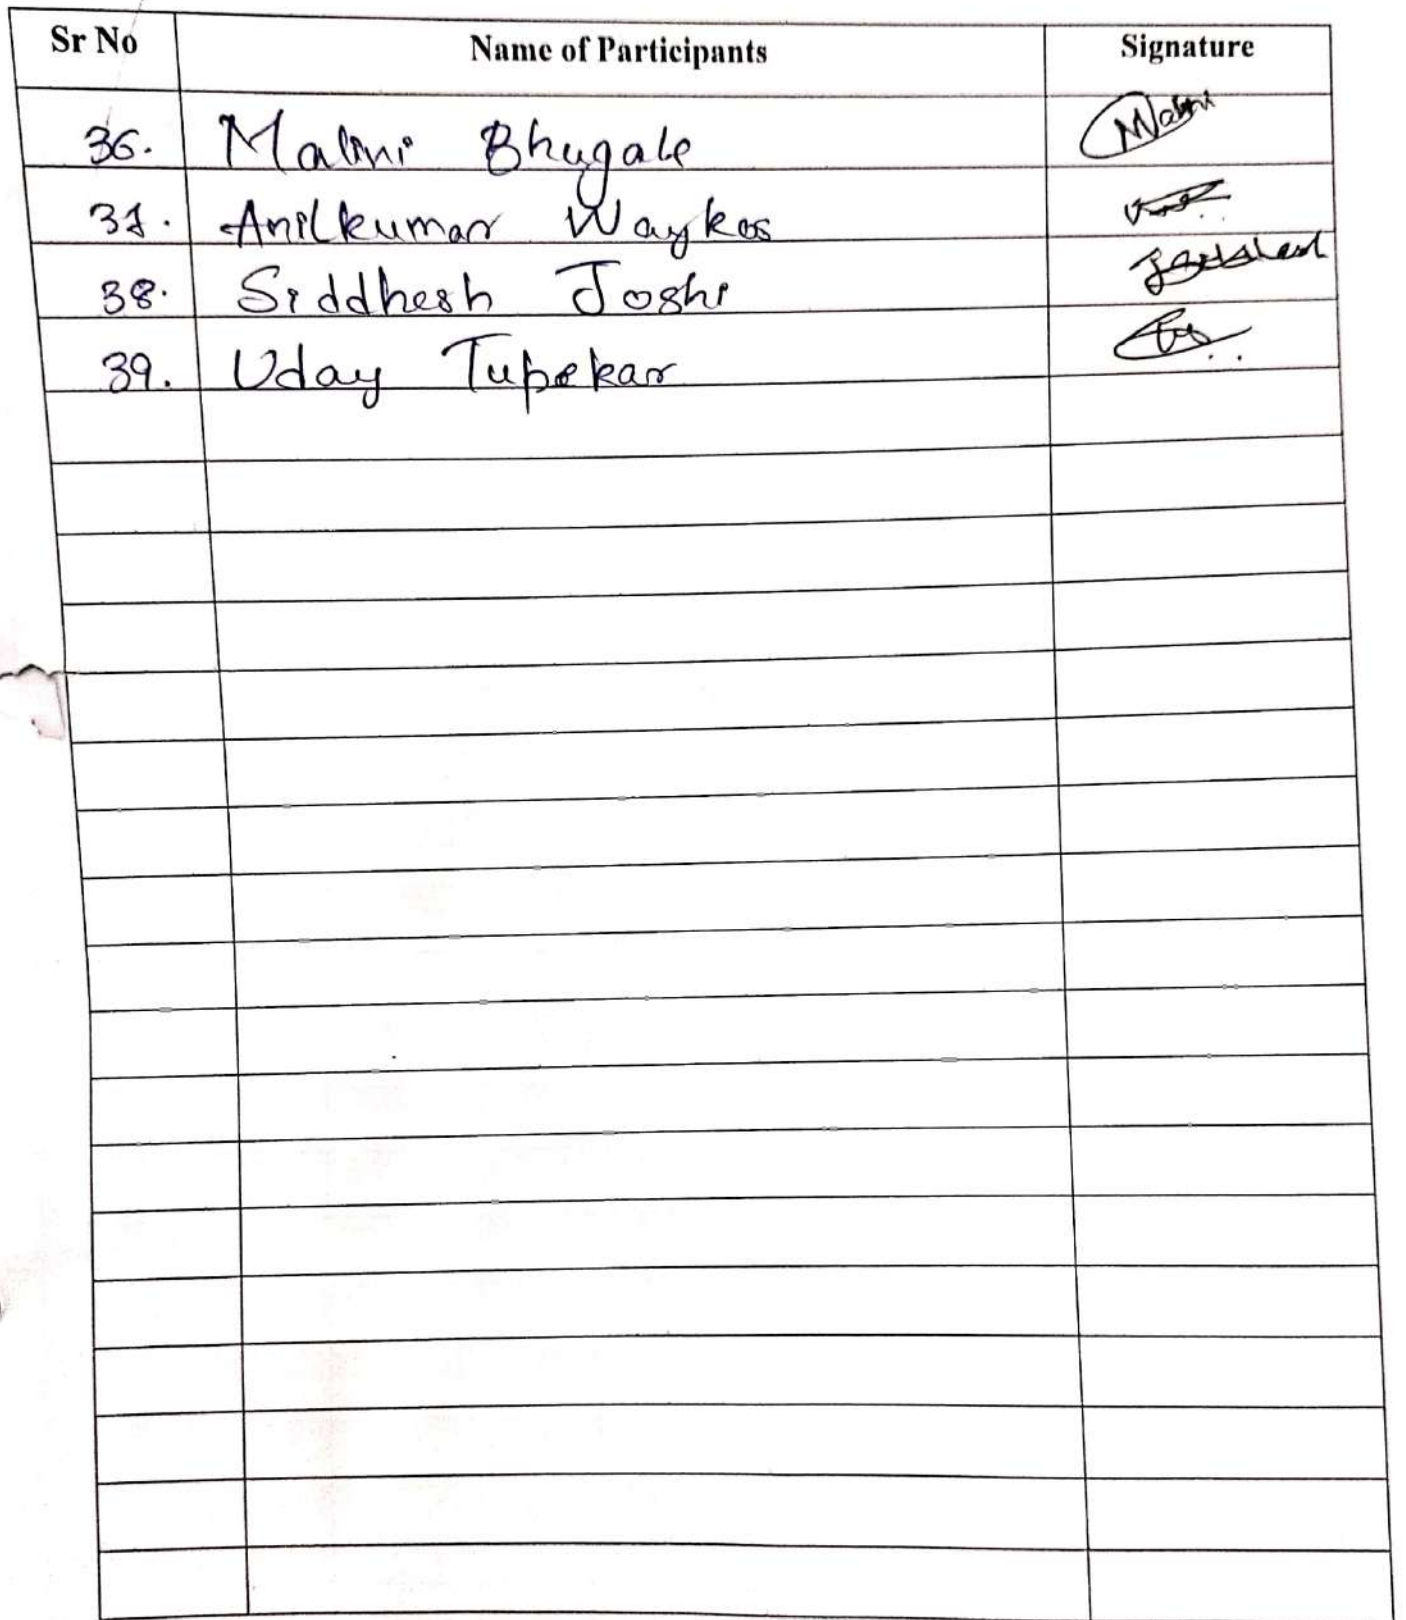 Sr No Name of Participants Signature
36. Malini Bhugale Malini
37. Anilkumar Waykos
38. Siddhesh Joshi
39. Uday Tupekar